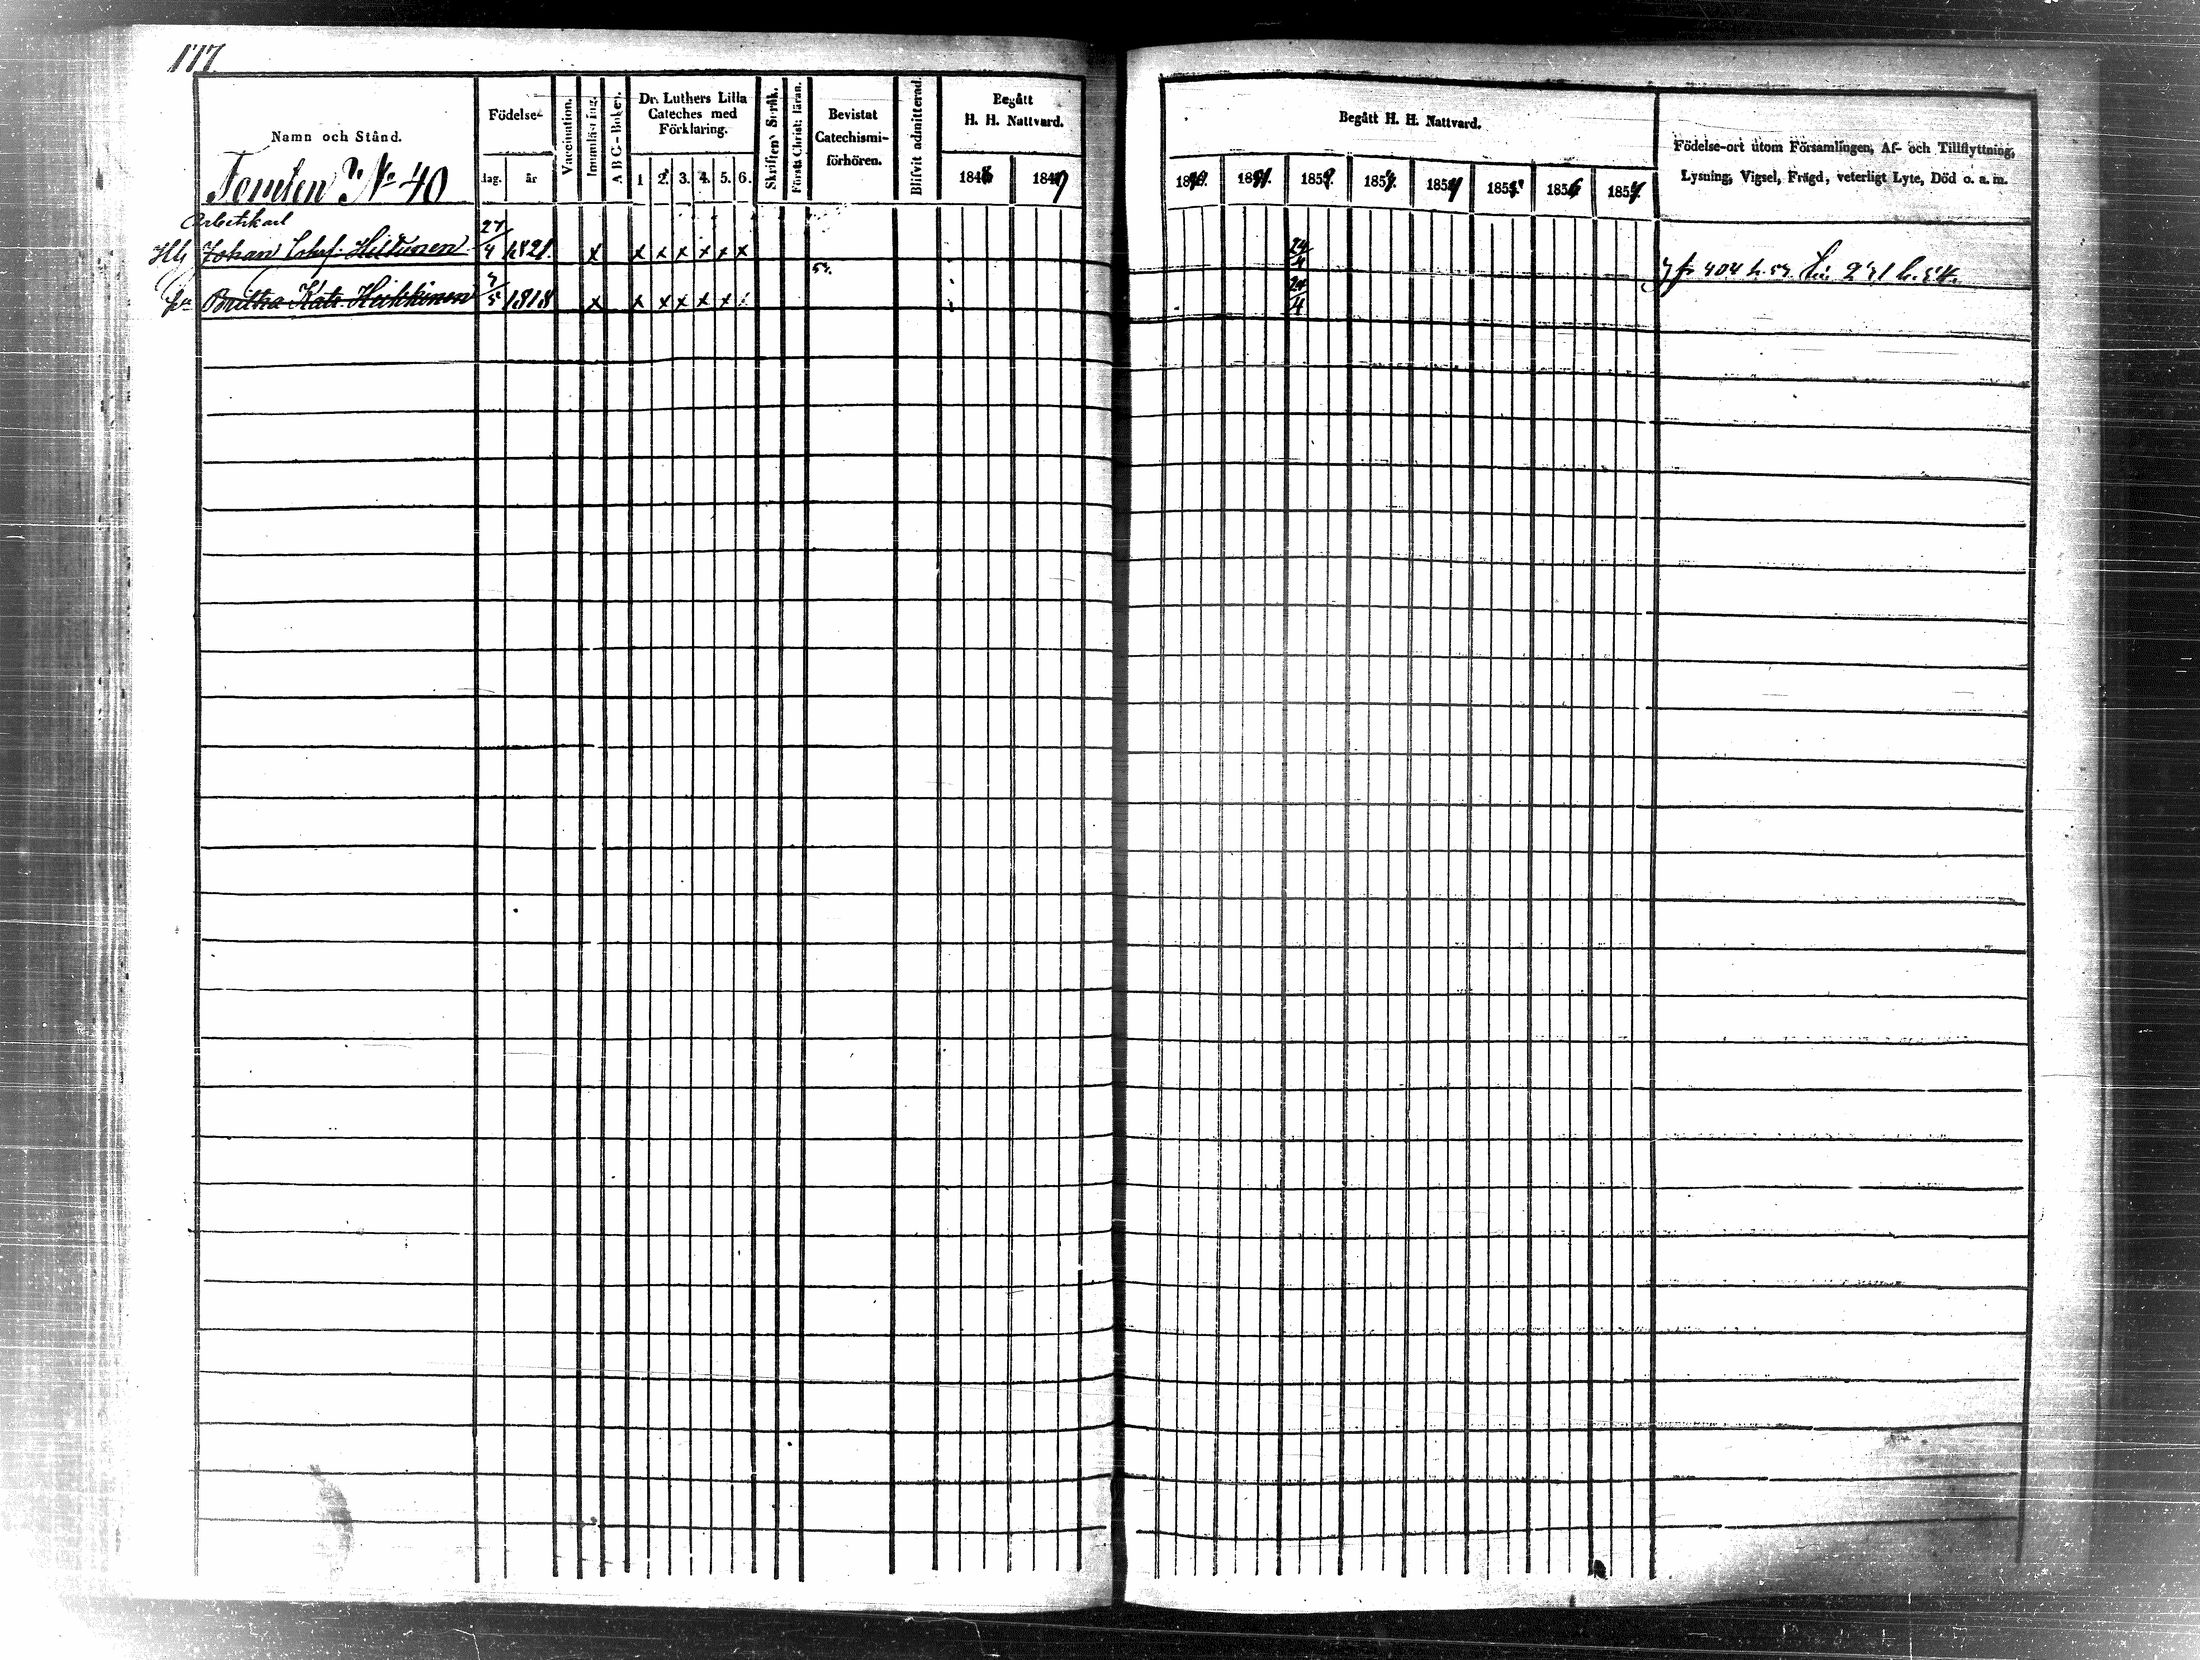 177
Namn och Stånd.
Födelse-
dag. år
Vaccination.
Innanläsning.
A B C-Boken.
Dr. Luthers Lilla
Cateches med
Förklaring.
1 2. 3. 4. 5. 6.
Skriftens Språk.
Första Christ: läran.
Bevistat
Catechismi-
förhören.
Blifvit admitterad.
Begått
H. H. Nattvard.
1848 1849
Begått H. H. Nattvard.
1850. 1851. 1852. 1853. 1854 1855 1856 1857.
Födelse-ort utom Församlingen, Af- och Tillflyttning,
Lysning, Vigsel, Frägd, veterligt Lyte, Död o. a. m.
Tomten No 40
Arbetskarl
Johan Hiltunen 27/4 1821. x x x x x x x 24/4
53.
Britha Kats. Heikkinen 7/5 1818 x x x x x x 24/4